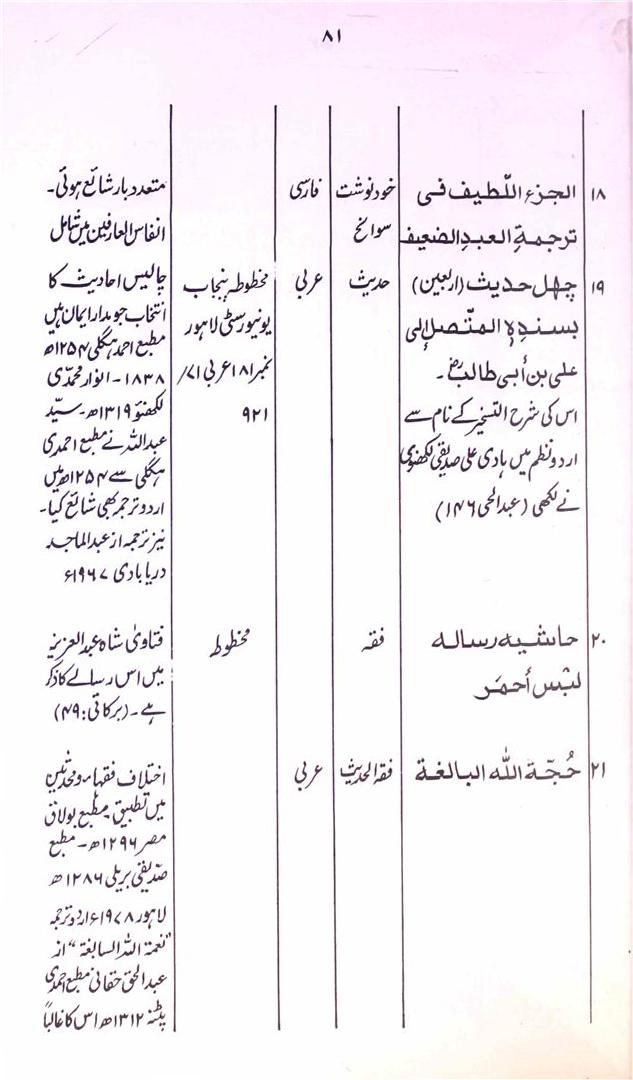 ۸۱
۱۸
الجزء اللّطيف فی
ترجمةِ العبدِ الضعیف
خودنوشت
سوانح
فارسی
متعدد بار شائع ہوئی۔
انفاس العارفین میں شامل
۱۹
چهل حدیث (اربعین)
بسندہٖ المتّصل إلى
علی بن أبی طالبؓ۔
اس کی شرح التسخیر کے نام سے
اردو نظم میں ہادی علی صدیقی لکھنوی
نے لکھی (عبدالحی ۱۴۶)
حدیث
عربی
مخطوطہ پنجاب
یونیورسٹی لاہور
نمبر ۱۸۱ عربی ۷۱/
۹۲۱
چالیس احادیث کا
انتخاب جو مدار ایمان ہیں
مطبع احمد ہگلی ۱۲۵۴ھ
۱۸۳۸۔ انوار محمّدی
لکھنؤ ۱۳۱۹ھ۔ سیّد
عبداللہ نے مطبع احمدی
ہگلی سے ۱۲۵۴ھ میں
اردو ترجمہ بھی شائع کیا۔
نیز ترجمہ از عبدالماجد
دریابادی ۱۹۶۷ء
۲۰
حاشیہ رسالہ
لبْس أحمَر
فقہ
مخطوطہ
فتاویٰ شاہ عبدالعزیز
میں اس رسالے کا ذکر
ہے۔ (برکاتی: ۴۹)
۲۱
حُجّة الله البالغة
فقہ الحدیث
عربی
اختلاف فقہاء و محدثین
میں تطبیق۔ مطبع بولاق
مصر ۱۲۹۶ھ۔ مطبع
صدّیقی بریلی ۱۲۸۶ھ
لاہور ۱۹۷۸ء اردو ترجمہ
"نعمة اللہ السابغة" از
عبدالحق حقانی مطبع احمدی
پٹنہ ۱۳۱۲ھ اس کا غالباً